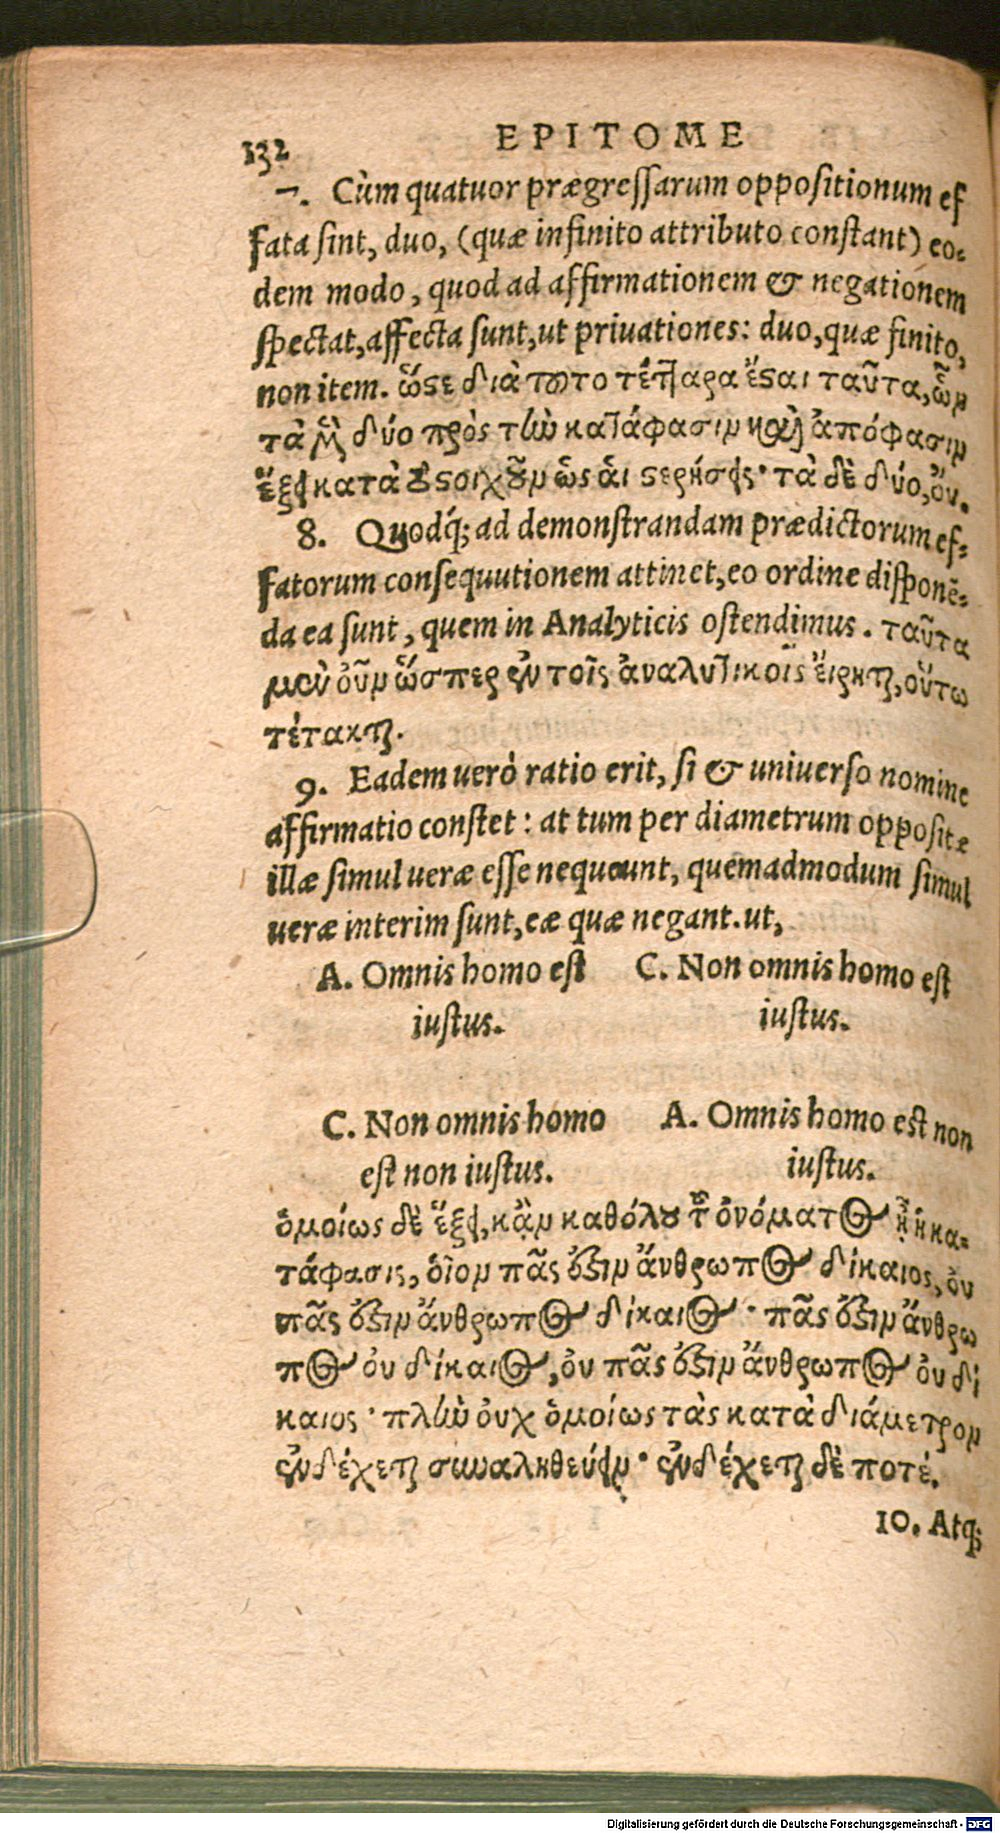 132
EPITOME
7. Cùm quatuor prægressarum oppositionum ef
fata sint, duo, (quæ infinito attributo constant) eo-
dem modo, quod ad affirmationem & negationem
spectat, affecta sunt, ut priuationes: duo, quæ finito,
non item. ὥστε διὰ τοῦτο τέτταρα ἔσται ταῦτα, ὧν
τὰ μὲν δύο πρὸς τὴν κατάφασιν καὶ ἀπόφασιν
ἕξει κατὰ τὸ στοιχοῦν ὡς ἁι στερήσεις· τὰ δὲ δύο, ὄυ.
8. Quodq́; ad demonstrandam prædictorum ef-
fatorum consequutionem attinet, eo ordine disponē-
da ea sunt, quem in Analyticis ostendimus. ταῦτα
μὲν οὖν ὥσπερ ἐν τοῖς ἀναλυτικοῖς ἔιρηται, οὕτω
τέτακται.
9. Eadem uerò ratio erit, si & uniuerso nomine
affirmatio constet: at tum per diametrum oppositæ
illæ simul ueræ esse nequeunt, quemadmodum simul
ueræ interim sunt, eæ quæ negant. ut,
A. Omnis homo est C. Non omnis homo est
iustus. iustus.
C. Non omnis homo A. Omnis homo est non
est non iustus. iustus.
ὁμοίως δὲ ἕξει, κἂν καθόλου τοῦ ὀνόματος ᾖ ἡ κα-
τάφασις, ὁῖον πᾶς ἐστιν ἄνθρωπος δίκαιος, ὀυ
πᾶς ἐστιν ἄνθρωπος δίκαιος· πᾶς ἐστιν ἄνθρω
πος ὀυ δίκαιος, ὀυ πᾶς ἐστιν ἄνθρωπος ὀυ δί
καιος· πλὴν ὀυχ ὁμοίως τὰς κατὰ διάμετρον
ἐνδέχεται συναληθεύειν· ἐνδέχεται δὲ ποτέ.
10. Atq;
Digitalisierung gefördert durch die Deutsche Forschungsgemeinschaft - DFG